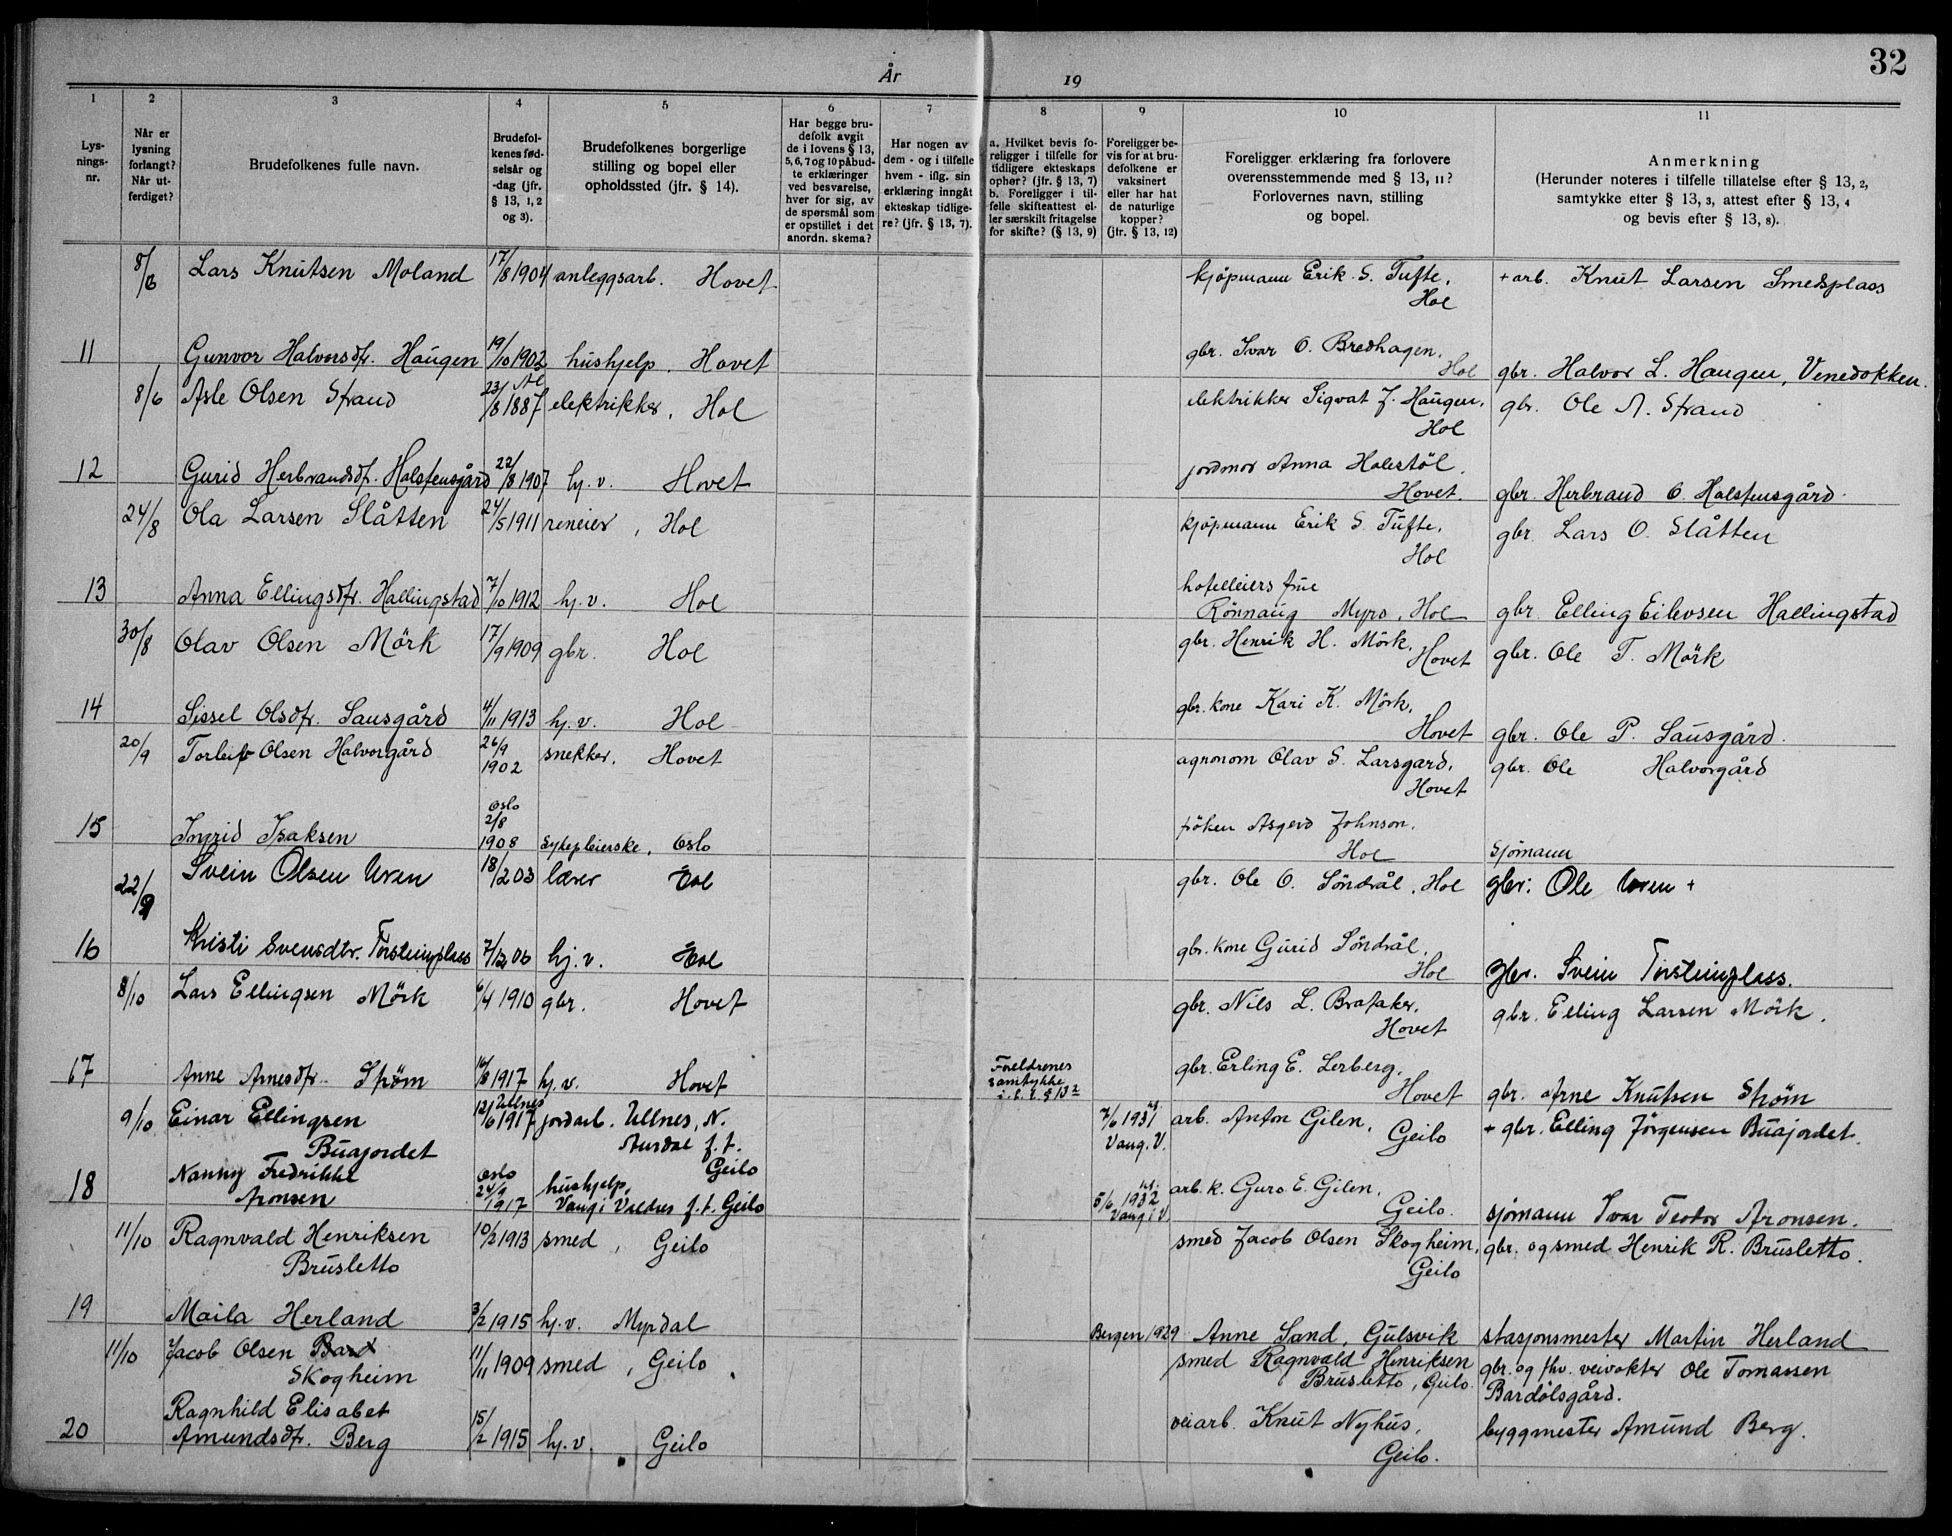 32
År 19
1 2 3 4 5 6 7 8 9 10 11
Lys-
nings-
nr.
Når er
lysning
forlangt?
Når ut-
ferdiget?
Brudefolkenes fulle navn.
Brudefol-
kenes fød-
selsår og
-dag (jfr.
§ 13, 1, 2
og 3).
Brudefolkenes borgerlige
stilling og bopel eller
opholdssted (jfr. § 14).
Har begge bru-
defolk avgit
de i lovens § 13,
5, 6, 7 og 10 påbud-
te erklæringer
ved besvarelse,
hver for sig, av
de spørsmål som
er opstillet i det
anordn. skema?
Har nogen av
dem - og i tilfelle
hvem - iflg. sin
erklæring inngåt
ekteskap tidlige-
re? (jfr. § 13, 7).
a. Hvilket bevis fo-
religger i tilfelle for
tidligere ekteskaps
ophør? (jfr. § 13, 7)
b. Foreligger i til-
felle skifteattest el-
ler særskilt fritagelse
for skifte? (§ 13, 9)
Foreligger be-
vis for at bru-
defolkene er
vaksinert
eller har hat
de naturlige
kopper?
(jfr. § 13, 12)
Foreligger erklæring fra forlovere
overensstemmende med § 13, 11?
Forlovernes navn, stilling
og bopel.
Anmerkning
(Herunder noteres i tilfelle tillatelse efter § 13, 2,
samtykke efter § 13, 3, attest efter § 13, 4
og bevis efter § 13, 8).
8/6 Lars Knutsen Moland 17/8 1904 anleggsarb. Hovet kjöpmann Erik S. Tufte, + arb. Knut Larsen Smedsplass
Hol
11 Gunvor Halvorsdtr. Haugen 19/10 1902 hushjelp, Hovet gbr. Ivar O. Bredhagen, Hol gbr. Halvor L. Haugen, Venedokken.
8/6 Asle Olsen Strand 23/8 1887 Al elektrikker, Hol elektrikker Sigvat J. Haugen, gbr. Ole A. Strand
Hol
12 Gurid Herbrandsdtr. Holstensgård 22/8 1907 hj.v. Hovet jordmor Anna Holestöl,
Hovet. gbr. Herbrand O. Holstensgård.
24/8 Ola Larsen Slåtten 24/5 1911 reneier, Hol kjöpmann Erik S. Tufte, gbr. Lars O. Slåtten
Hol
13 Anna Ellingsdtr. Hallingstad 7/10 1912 hj.v. Hol hotelleiers frue
Rönnaug Myro, Hol gbr. Elling Eilevsen Hallingstad
30/8 Olav Olsen Mörk 17/9 1909 gbr. Hol gbr. Henrik H. Mörk, Hovet gbr. Ole T. Mörk
14 Sissel Olsdtr. Sausgård 4/11 1913 hj.v. Hol gbr. kone Kari K. Mörk,
Hovet gbr. Ole P. Sausgård.
20/9 Torleif Olsen Halvorgård 26/9 1902 snekker, Hovet agronom Olav S. Larsgard, gbr. Ole Halvorgård
Hovet
15 Ingrid Isaksen Oslo 2/8 1908 sykepleierske, Oslo fröken Asgerd Johnson,
Hol
sjömann
22/9 Svein Olsen Uren 18/2 03 lærer Hol gbr. Ole O. Söndrål, Hol gbr. Ole Uren +
16 Kristi Svensdtr. Torsteinplass 7/12 06 hj.v. Hol gbr. kone Gurid Söndrål,
Hol gbr. Svein Torsteinplass.
8/10 Lars Ellingsen Mörk 6/4 1910 gbr. Hovet gbr. Nils L. Brataker, gbr. Elling Larsen Mörk.
Hovet
17 Anne Arnesdtr. Ström 16/8 1917 hj.v. Hovet Foreldrenes samtykke gbr. Erling E. Lerberg,
Hovet gbr. Arne Knutsen Ström
9/10 Einar Ellingsen 12/6 1917 Ullnes jordarb. Ullnes, N. 7/6 1931 arb. Anton Gilen, + gbr. Elling Jörgensen Buajordet.
Buajordet Aurdal f.t. Vang. V. Geilo
Geilo
18 Nanny Fredrikke Oslo 24/9 hushjelp, 5/6 1932 arb. k. Guro E. Gilen,
Aronsen 1917 Vang i Valdres f.t. Geilo Vang i V. Geilo. sjömann Ivar Teodor Aronsen.
11/10 Ragnvald Henriksen 10/2 1913 smed, Geilo smed Jacob Olsen Skogheim, gbr. og smed Henrik R. Brusletto.
Brusletto Geilo
19 Maila Herland 3/2 1915 hj.v. Myrdal Bergen 1929 Anne Sand, Gulsvik stasjonsmester Martin Herland
11/10 Jacob Olsen Bard 11/11 1909 smed, Geilo smed Ragnvald Henriksen gbr. og fhv. veivokter Ole Tomassen
Skogheim Brusletto, Geilo. Bardölsgård.
20 Ragnhild Elisabet 15/2 1915 hj.v. Geilo veiarb. Knut Nyhus, byggmester Amund Berg.
Amundsdtr. Berg Geilo.